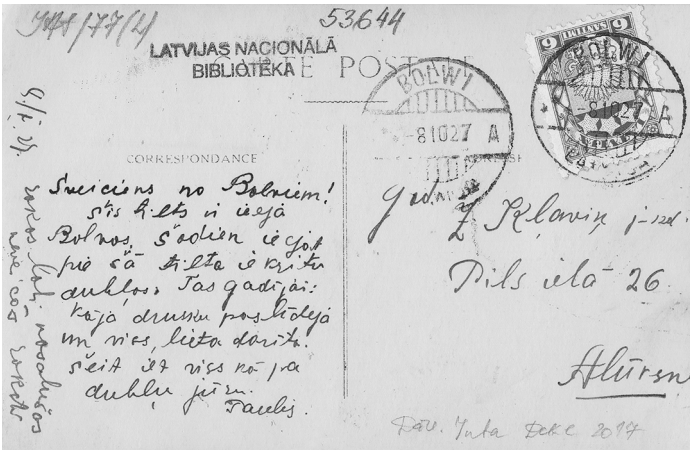 53644
LATVIJAS NACIONĀLĀ
BIBLIOTĒKA
CARTE POSTALE
9 9
BOLWI
-8 10 27 A
BOLWI
-8 10 27 A
CORRESPONDANCE
Sveiciens no Bolviem!
Šis tilts ir ieejā
Bolvos. Šodien ieejot
pie šā tilta iekritu
dubļos. Tas gadījās:
kāja drusku paslīdēja
un viss lieta darīta.
Šeit iet viss kā pa
dubļu jūru.
Pauls.
rokas ļoti nosalušas
God. Z Kļaviņ j-dze.
Pils ielā 26
Alūksn
Dāv. Inta 2017